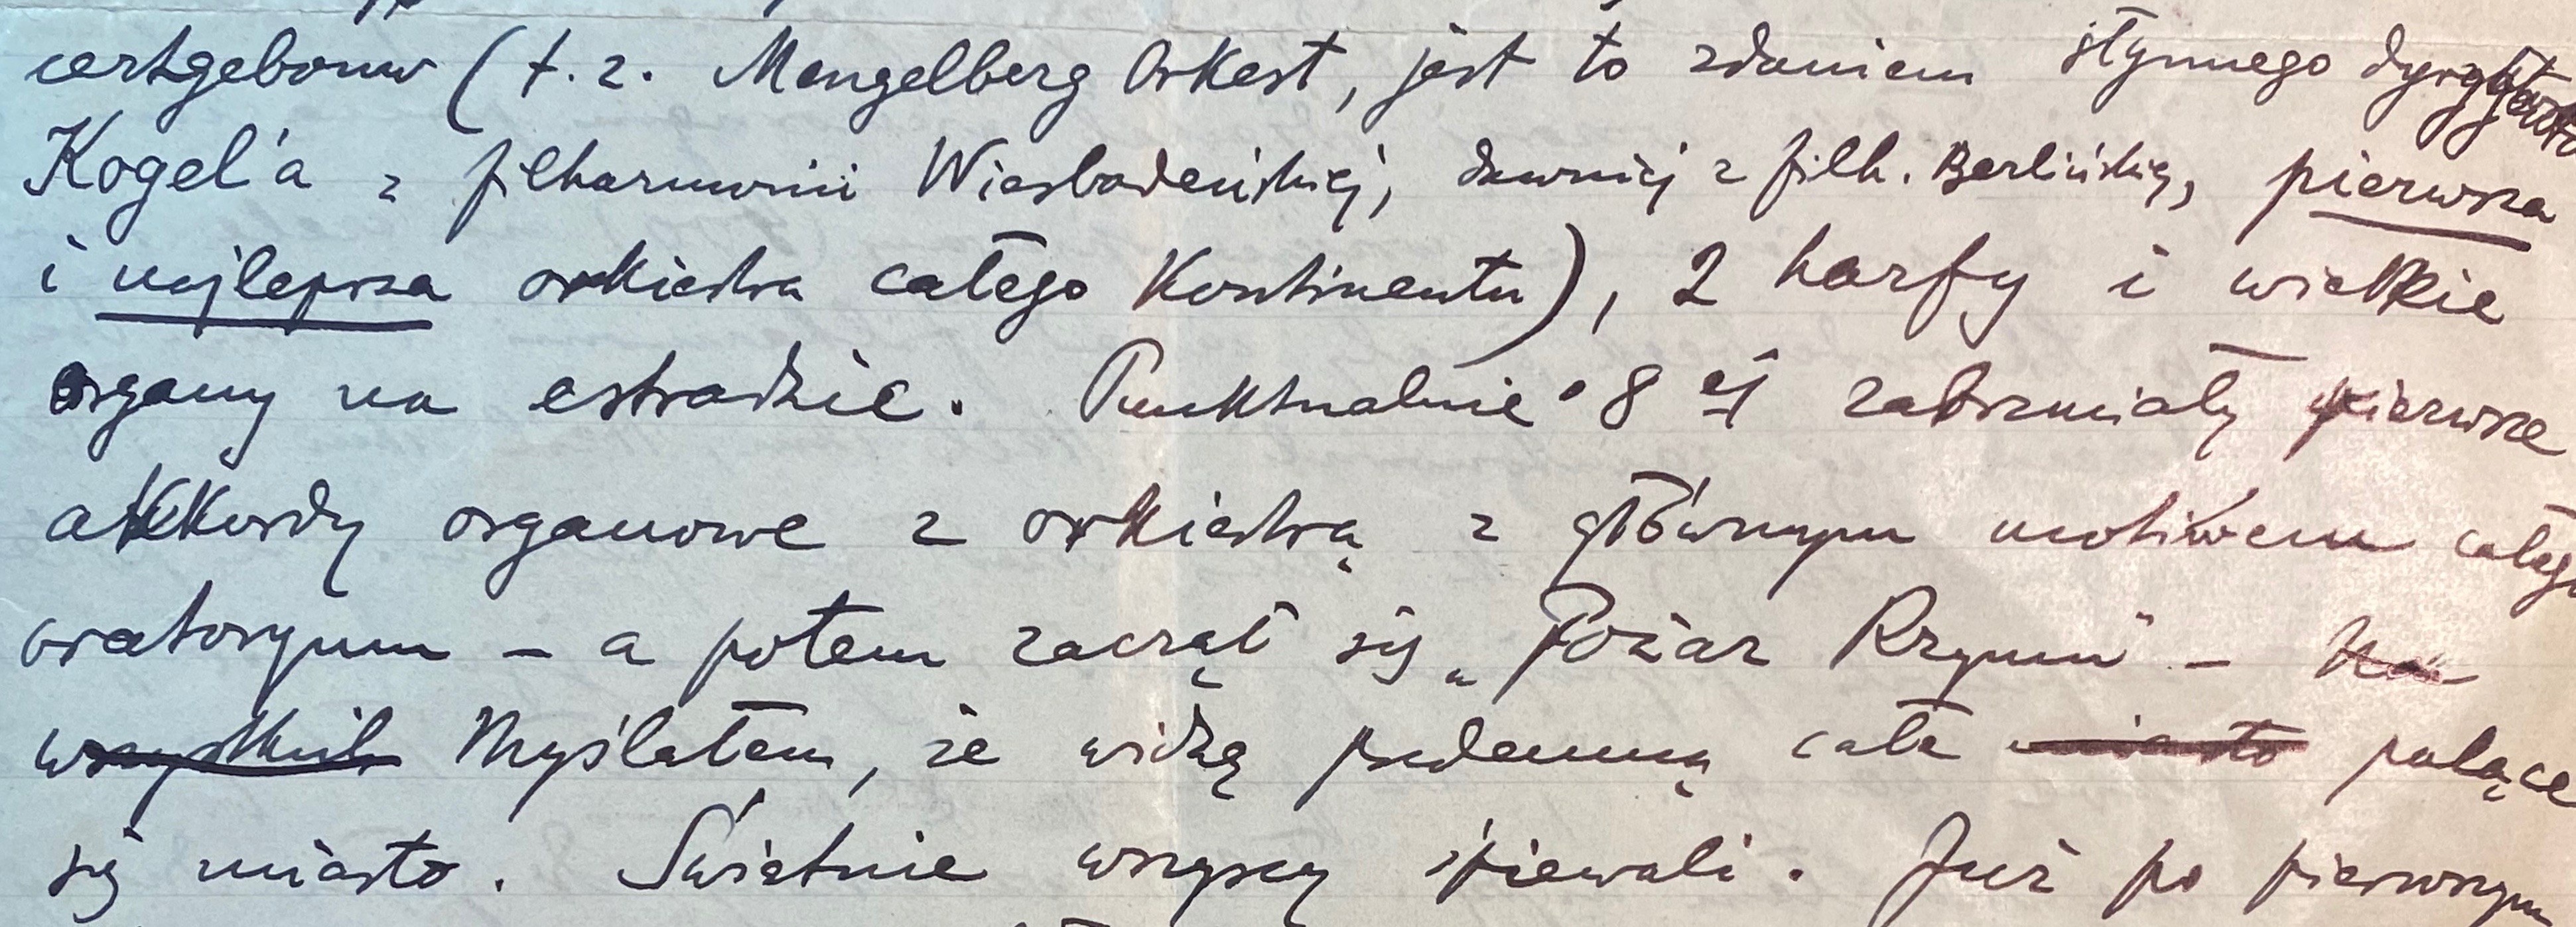 certgebouw (t. z. Mengelberg Orkest, jest to zdaniem słynnego
Kogel'a z filharmonii Wiesbadeńskiej, dawniej z filh. Berlińskiej, pierwsza
i najlepsza orkiestra całego Kontinentu), 2 harfy i wielkie
organy na estradzie. Punktualnie o 8 ej zabrzmiały pierwsze
akkordy organowe z orkiestrą z głównym motivem całego
oratoryum – a potem zaczął się „Pożar Rzymu" – Na
wszystkich Myślałem, że widzę przedemną całe miasto palące
się miasto. Świetnie wszyscy śpiewali. Już po pierwszym